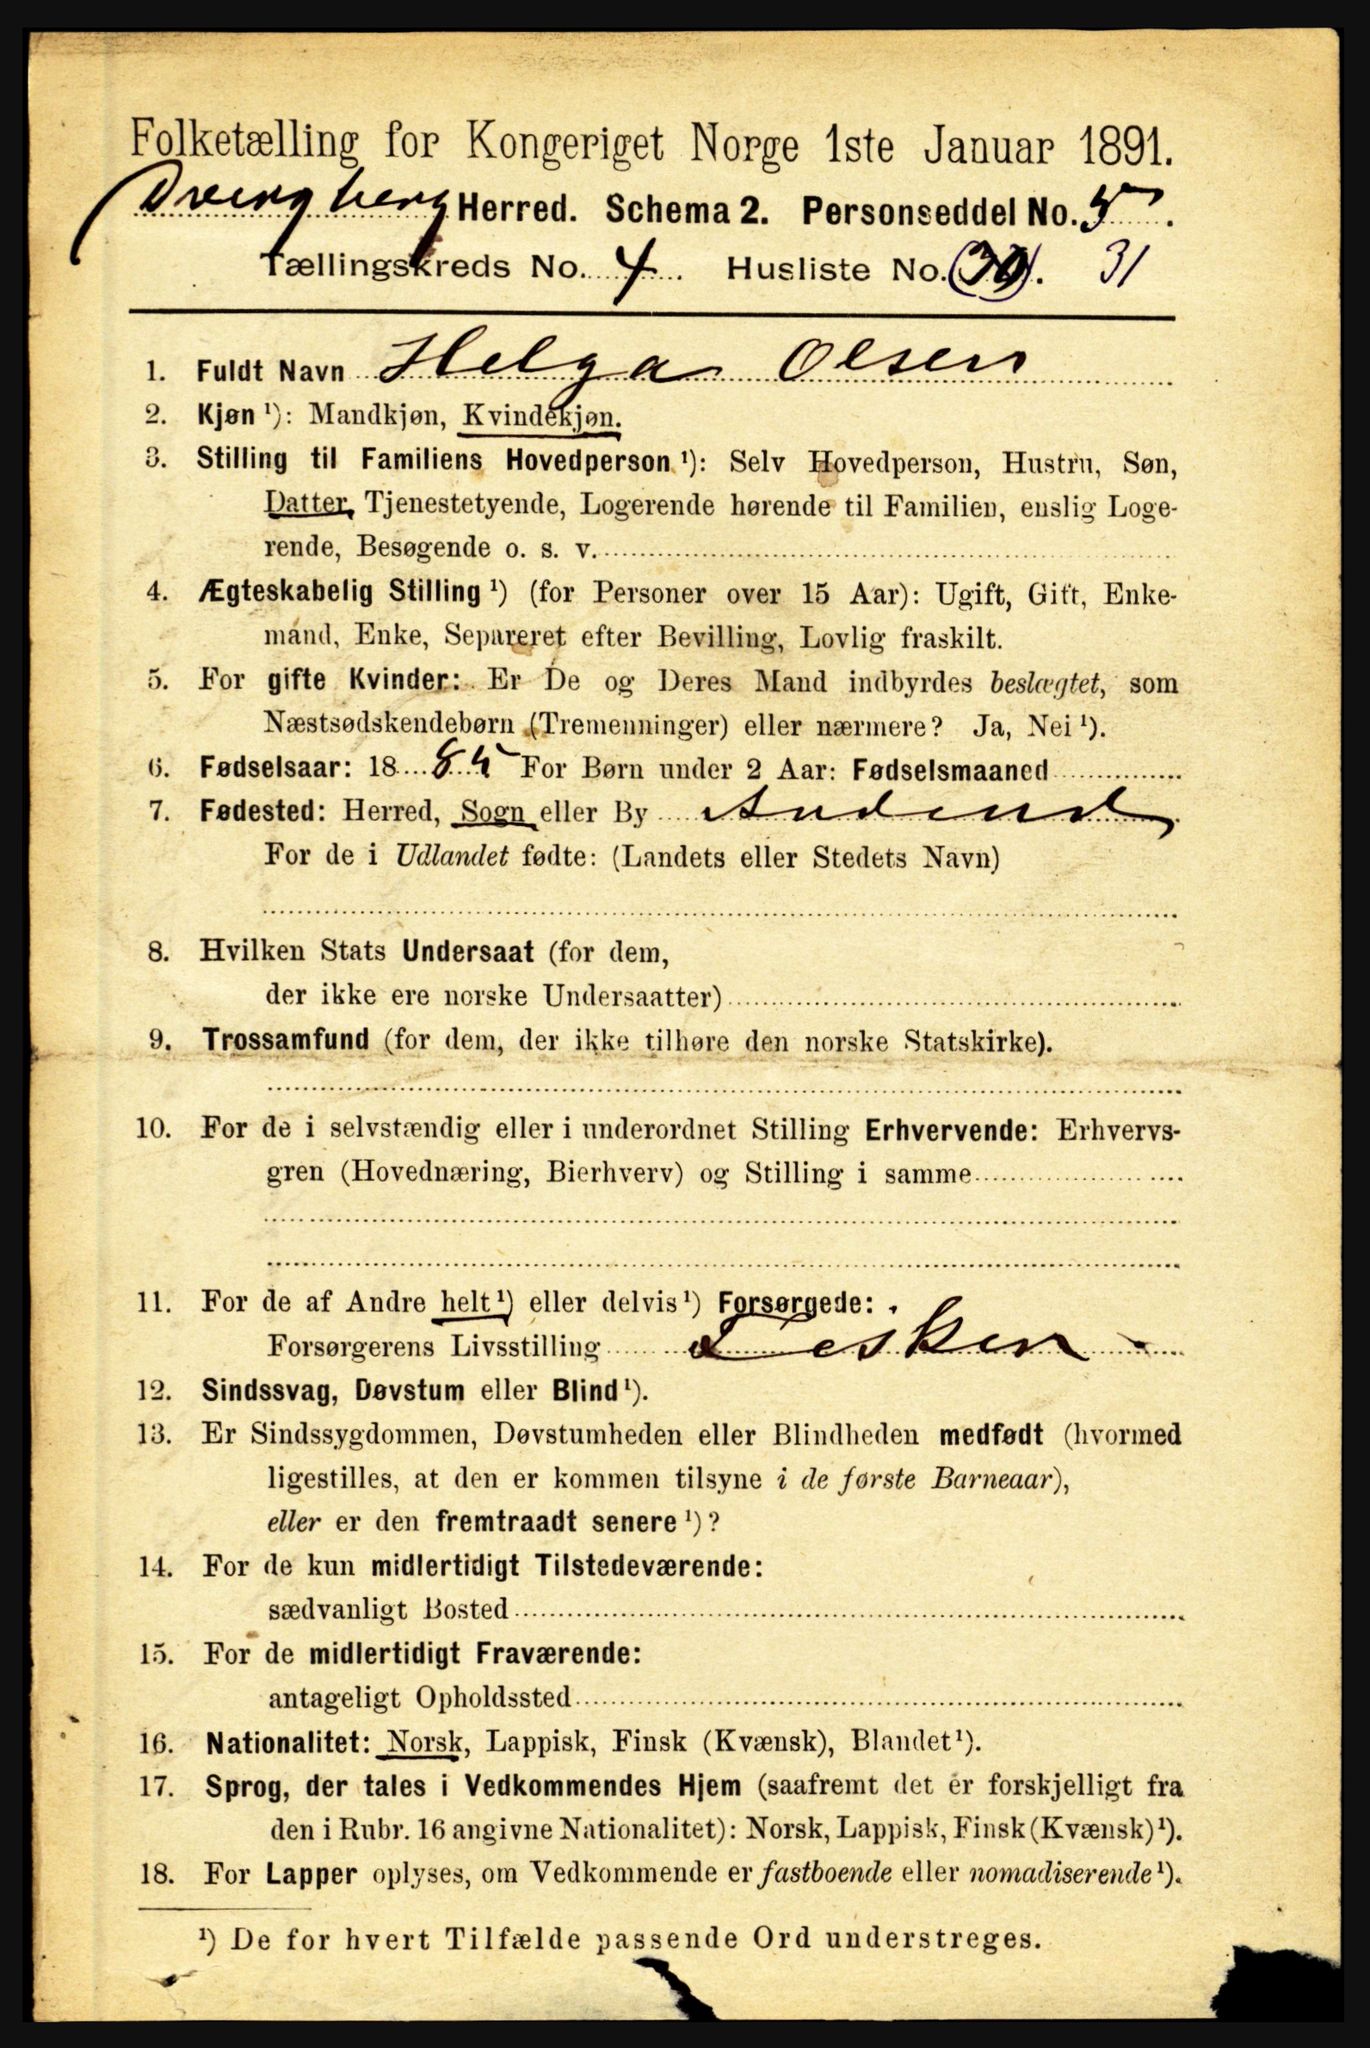 Folketælling for Kongeriget Norge 1ste Januar 1891.
Dverg berg Herred. Schema 2. Personseddel No. 5.
Tællingskreds No. 4. Husliste No. (30). 31
1. Fuldt Navn Helga Olsen
2. Kjøn ¹): Mandkjøn, Kvindekjøn.
3. Stilling til Familiens Hovedperson ¹): Selv Hovedperson, Hustru, Søn,
Datter, Tjenestetyende, Logerende hørende til Familien, enslig Loge-
rende, Besøgende o. s. v.
4. Ægteskabelig Stilling ¹) (for Personer over 15 Aar): Ugift, Gift, Enke-
mand, Enke, Separeret efter Bevilling, Lovlig fraskilt.
5. For gifte Kvinder: Er De og Deres Mand indbyrdes beslægtet, som
Næstsødskendebørn (Tremenninger) eller nærmere? Ja, Nei ¹).
6. Fødselsaar: 18 85 For Børn under 2 Aar: Fødselsmaaned
7. Fødested: Herred, Sogn eller By
For de i Udlandet fødte: (Landets eller Stedets Navn)
8. Hvilken Stats Undersaat (for dem,
der ikke ere norske Undersaatter)
9. Trossamfund (for dem, der ikke tilhøre den norske Statskirke).
10. For de i selvstændig eller i underordnet Stilling Erhvervende: Erhvervs-
gren (Hovednæring, Bierhverv) og Stilling i samme
11. For de af Andre helt ¹) eller delvis ¹) Forsørgede:
Forsørgerens Livsstilling
12. Sindssvag, Døvstum eller Blind ¹).
13. Er Sindssygdommen, Døvstumheden eller Blindheden medfødt (hvormed
ligestilles, at den er kommen tilsyne i de første Barneaar),
eller er den fremtraadt senere ¹)?
14. For de kun midlertidigt Tilstedeværende:
sædvanligt Bosted
15. For de midlertidigt Fraværende:
antageligt Opholdssted
16. Nationalitet: Norsk, Lappisk, Finsk (Kvænsk), Blandet ¹).
17. Sprog, der tales i Vedkommendes Hjem (saafremt det er forskjelligt fra
den i Rubr. 16 angivne Nationalitet): Norsk, Lappisk, Finsk (Kvænsk) ¹).
18. For Lapper oplyses, om Vedkommende er fastboende eller nomadiserende ¹).
¹) De for hvert Tilfælde passende Ord understreges.